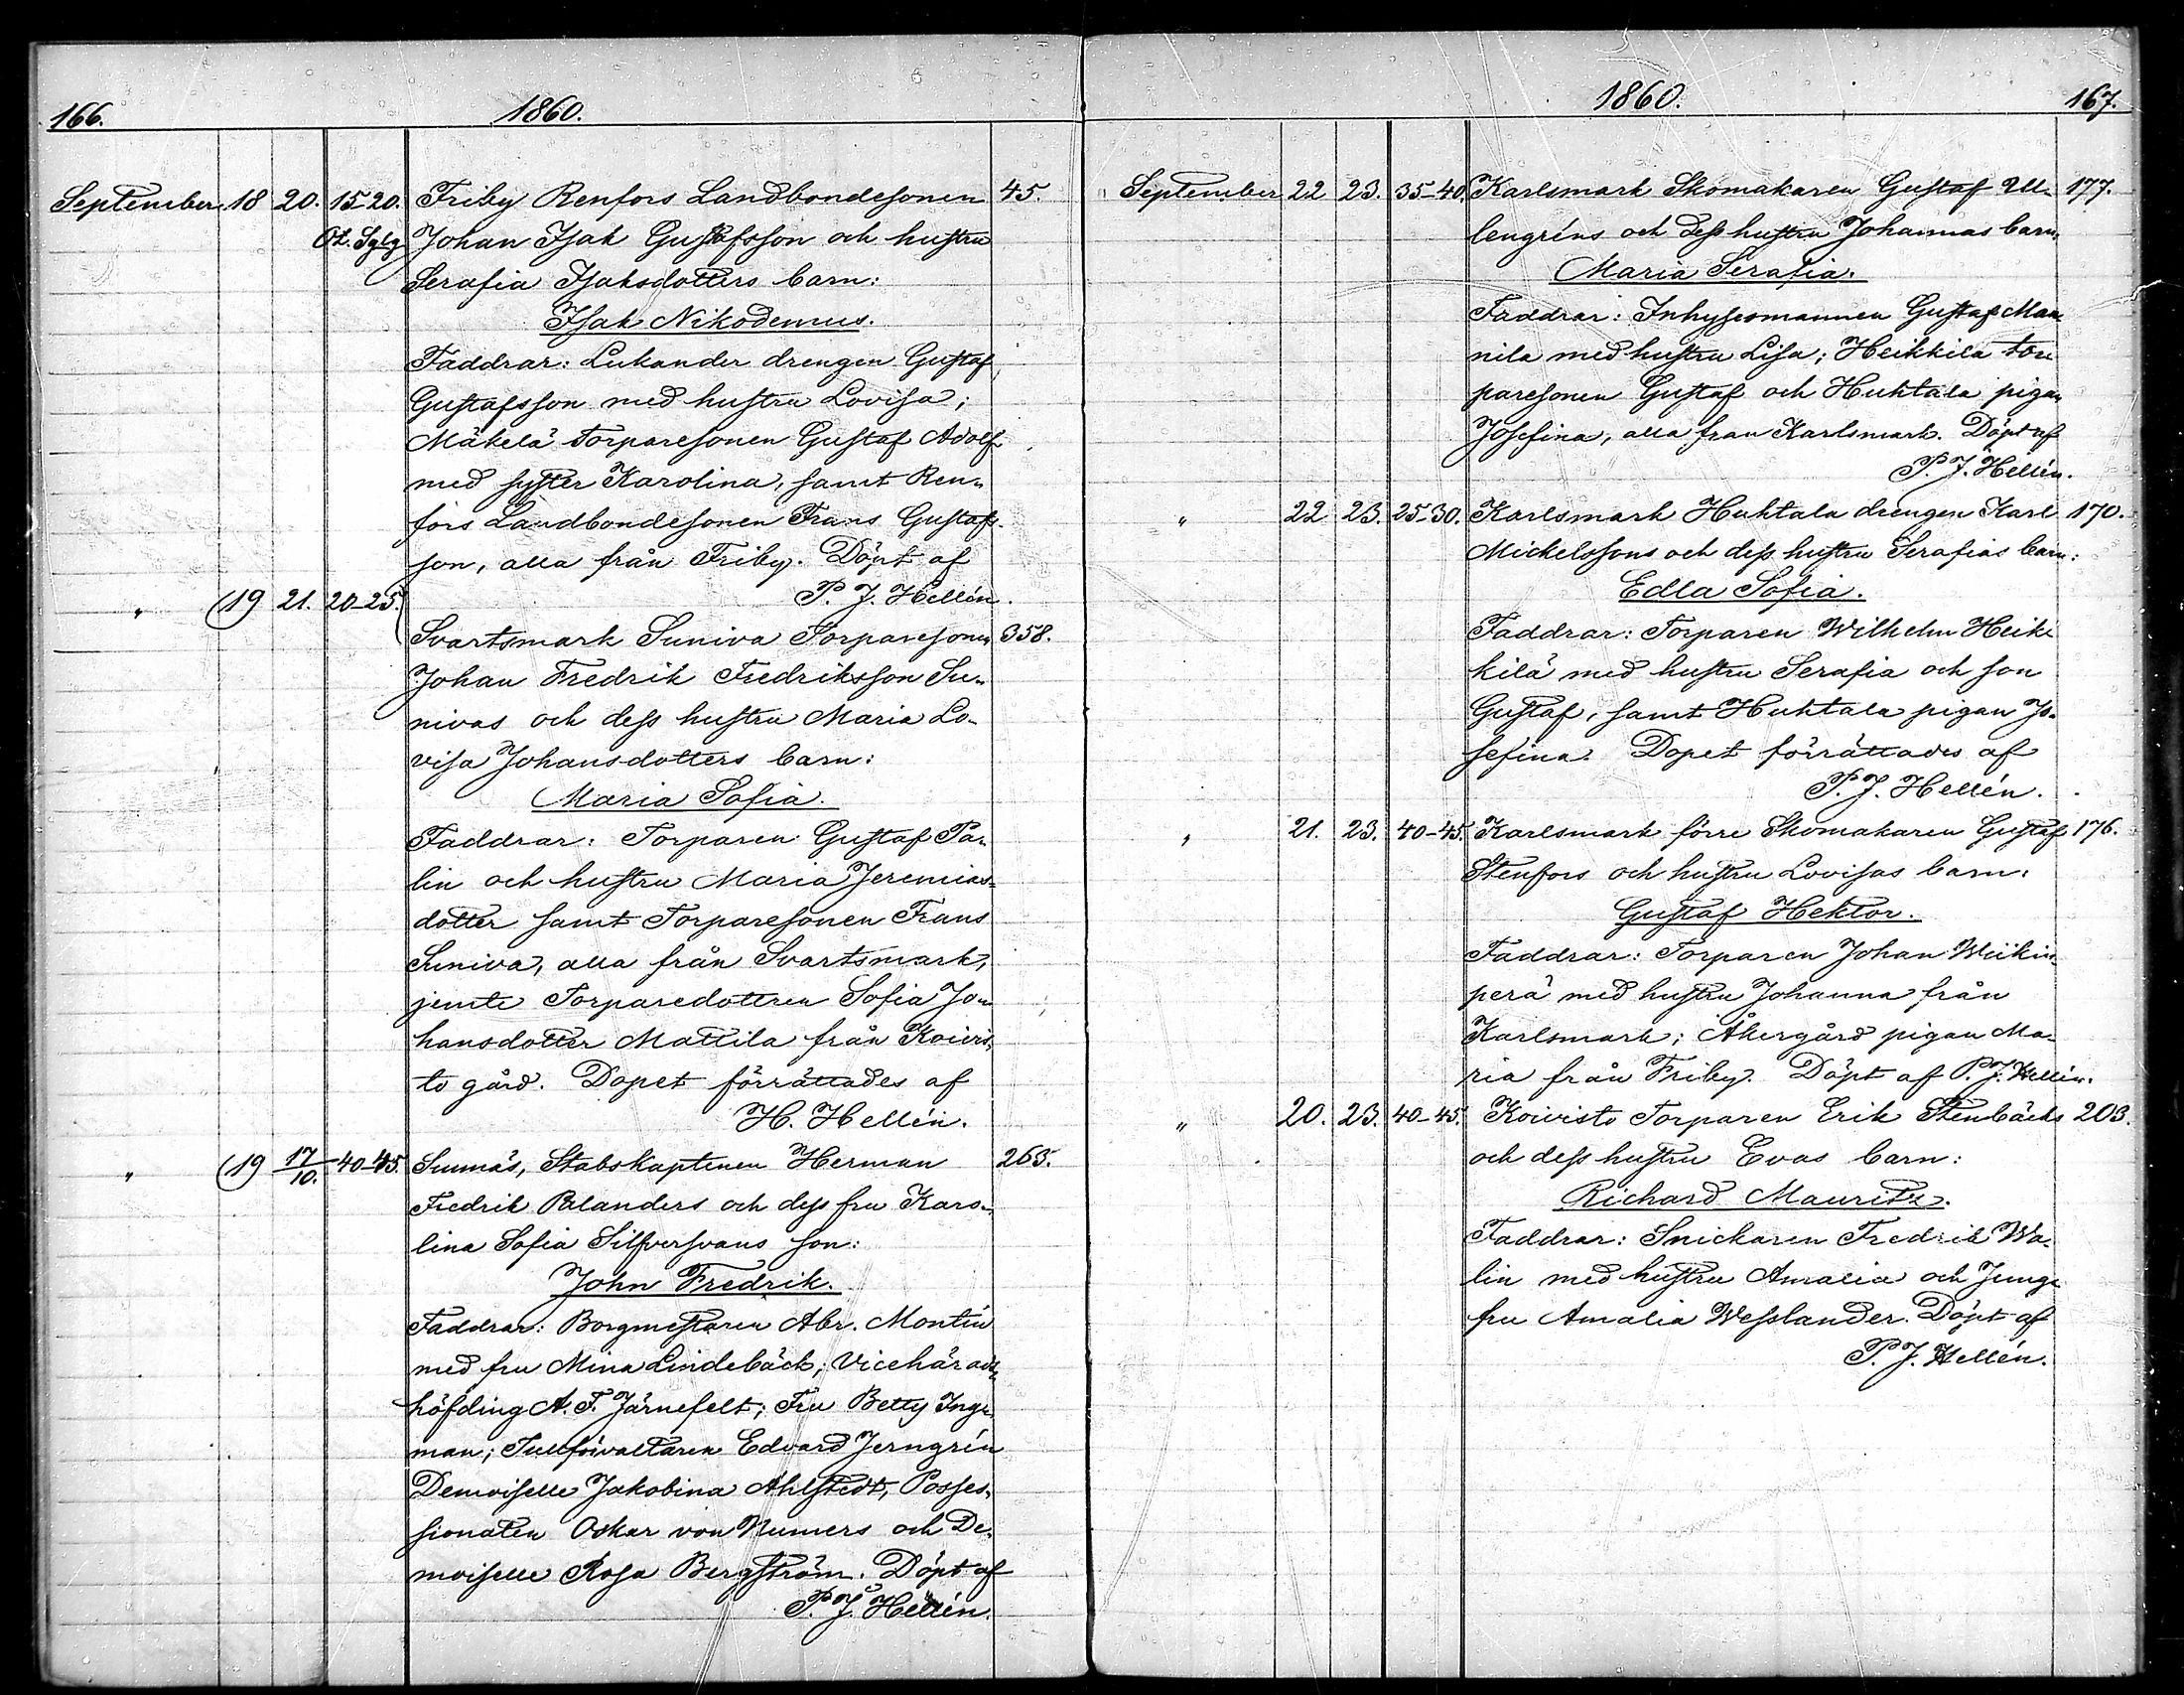 166. 1860.
September 18 20. 15-20. Friby Renfors Landbondesonen 45.
Ot. Sglg Johan Isak Gustafsson och hustru
Serafia Isaksdotters barn:
Isak Nikodemus.
Faddrar: Lukander drengen Gustaf
Gustafsson med hustru Lovisa;
Mäkelä torparesonen Gustaf Adolf
med syster Karolina, samt Ren-
fors Landbondesonen Frans Gustafs-
son, alla från Friby. Döpt af
P. J. Hellén.
" 19 21. 20-25.
Svartsmark Suniva Torparesonen 358.
Johan Fredrik Fredriksson Su-
nivas och dess hustru Maria Lo-
visa Johansdotters barn:
Maria Sofia.
Faddrar: Torparen Gustaf Pa-
lin och hustru Maria Jeremias-
dotter samt Torparesonen Frans
Suniva, alla från Svartsmark,
jemte Torparedottren Sofia Jo-
hansdotter Mattila från Koivis-
to gård. Dopet förrättades af
H. Hellén.
" 19 17/10. 40-45. Sunnäs, Stabskaptenen Herman 265.
Fredrik Relanders och dess fru Karo-
lina Sofia Silfversvans son:
John Fredrik.
Faddrar: Borgmestaren Abr. Montin
med fru Mina Lindebäck; Vicehärads-
höfding A. F. Järnefelt; Fru Betty Inge-
man; Tullförvaltaren Edvard Jerngrén
Demoiselle Jakobina Ahlstedt, Posses-
sionaten Oskar von Numers och De-
moiselle Rosa Bergström. Döpt af
P. J. Hellén.
1860. 167.
September 22 23. 35-40. Karlsmark Skomakaren Gustaf Ul- 177.
lengréns och dess hustru Johannas barn,
Maria Serafia.
Faddrar: Inhysesmannen Gustaf Man-
nila med hustru Lisa; Heikkila tor-
paresonen Gustaf och Huhtala pigan
Josefina, alla fran Karlsmark. Döpt af
P. J. Hellén.
" 22 23. 25-30. Karlsmark Huhtala drengen Karl 170.
Mickelssons och dess hustru Serafias barn:
Edla Sofia.
Faddrar: Torparen Wilhelm Heik-
kilä med hustru Serafia och son
Gustaf, samt Huhtala pigan Jo-
sefina. Dopet förrättades af
P. J. Hellén.
" 21. 23. 40-45. Karlsmark förre Skomakaren Gustaf 176.
Stenfors och hustru Lovisas barn:
Gustaf Hektor.
Faddrar: Torparen Johan Wiikin-
perä med hustru Johanna från
Karlsmark; Åkergård pigan Ma-
ria från Friby. Döpt af P. J. Hellén.
" 20. 23. 40-45. Koivisto Torparen Erik Stenbäcks 203.
och dess hustru Evas barn:
Richard Mauritz.
Faddrar: Snickaren Fredrik Wa-
lin med hustru Amalia och Jung-
fru Amalia Wesslander. Döpt af
P. J. Hellén.